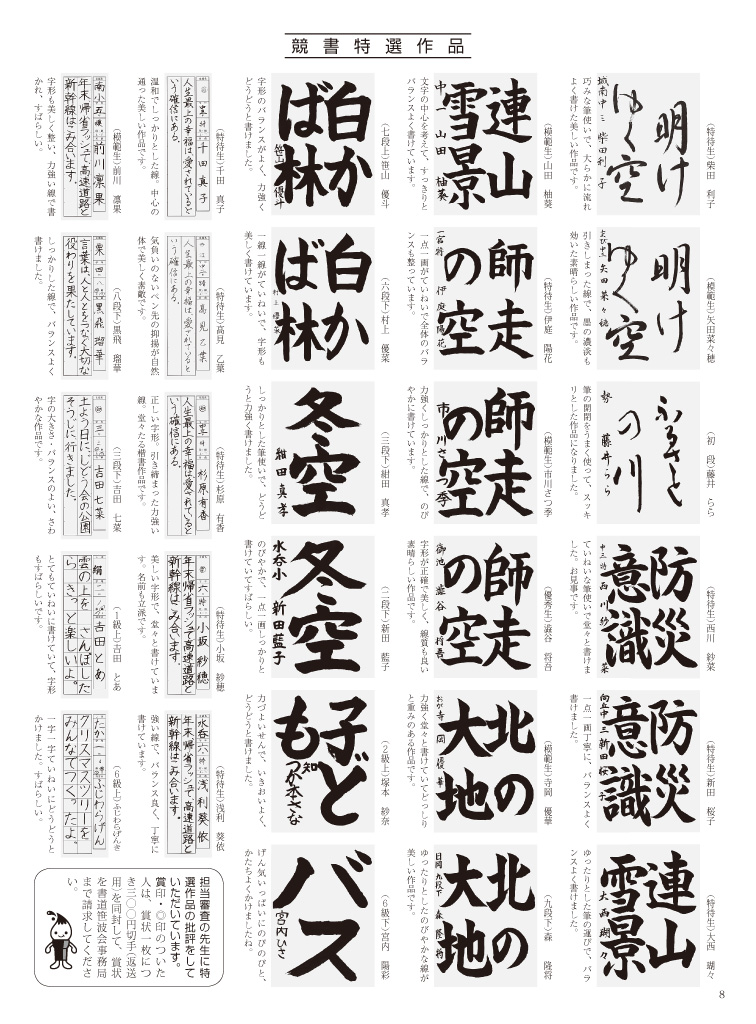 競書特選作品
明け
ゆく空
城南中三 柴田利子
(特待生)柴田 利子
巧みな筆使いで、大らかに流れ
よく書けた美しい作品です。
明け
ゆく空
矢田菜々穂
(模範生)矢田菜々穂
引きしまった線で、墨の濃淡も
効いた素晴らしい作品です。
ふるさと
の川
藤井らら
(初 段)藤井 らら
筆の開閉をうまく使って、スッキ
リとした作品になりました。
防災
意識
中三 特 西川紗菜
(特待生)西川 紗菜
ていねいな筆使いで堂々と書けま
した。お見事です。
防災
意識
向丘中三 新田桜子
(特待生)新田 桜子
一点一画丁寧に、バランスよく
書けました。
連山
雪景
大西瑚々
(特待生)大西 瑚々
ゆったりとした筆の運びで、バラ
ンスよく書けました。
連山
雪景
中一 山田柚葵
(模範生)山田 柚葵
文字の中心を考えて、すっきりと
バランスよく書けています。
師走
の空
伊庭陽花
(特待生)伊庭 陽花
一点一画がていねいで全体のバラ
ンスも整っています。
師走
の空
市川さつ季
(模範生)市川さつ季
力強くしっかりとした線で、のび
やかに書けています。
師走
の空
御池 澁谷将吾
(優秀生)澁谷 将吾
字形が正確で美しく、線質も良い
素晴らしい作品です。
北の
大地
寺岡優華
(模範生)寺岡 優華
力強く堂々と書けていてどっしり
と重みのある作品です。
北の
大地
日岡 九段下 森隆将
(九段下)森 隆将
ゆったりとしたのびやかな線が
美しい作品です。
白か
ば林
笹山優斗
(七段上)笹山 優斗
字形のバランスがよく、力強く
どうどうと書けました。
白か
ば林
村上優菜
(六段下)村上 優菜
一線一線がていねいで、字形も
美しく書けています。
冬空
紺田真孝
(三段下)紺田 真孝
しっかりとした筆使いで、どうど
うと力強く書けました。
冬空
水呑小 新田藍子
(二段下)新田 藍子
のびやかで、一点一画しっかりと
書けていてすばらしい。
子ど
も
(2級上)塚本 紗奈
力づよいせんで、いきおいよく、
どうどうと書けました。
バス
宮内ひさ
(6級下)宮内 陽
げん気いっぱいにのびのびと、
かたちよくかけましたね。
千田真子
人生最上の幸福は、愛されていると
いう確信にある。
(特待生)千田 真子
温和でしっかりとした線。中心の
通った美しい作品です。
高見乙葉
人生最上の幸福は、愛されていると
いう確信にある。
(特待生)高見 乙葉
気負いのないペン先の抑揚が自然
体で美しく素敵です。
杉原有香
人生最上の幸福は、愛されていると
いう確信にある。
(特待生)杉原 有香
正しい字形。引き締まった力強い
線。堂々たる楷書作品です。
六 小坂紗穂
年末帰省ラッシュで高速道路と
新幹線はこみ合います。
(特待生)小坂 紗穂
美しい字形で、堂々と書けていま
す。名前も立派です。
水呑 六 浅利葵依
年末帰省ラッシュで高速道路と
新幹線はこみ合います。
(特待生)浅利 葵依
強い線で、バランス良く、丁寧に
書けています。
南小 五 前川凛果
年末帰省ラッシュで高速道路と
新幹線はこみ合います。
(模範生)前川 凛果
字形も美しく整い、力強い線で書
かれ、すばらしい。
四 黒飛瑠華
言葉は、人と人とをつなぐ大切な
役わりを果たしています。
(八段下)黒飛 瑠華
しっかりした線で、バランスよく
書けました。
三 吉田七菜
土よう日に、しどう会の公園
そうじに行きました。
(三段下)吉田 七菜
字の大きさ・バランスのよい、さわ
やかな作品です。
吉田とめ
雲の上を さんぽした
ら、きっと楽しいよ。
(1級上)吉田 とあ
とてもていねいに書けていて、字形
もすばらしいです。
ふじわらげん
クリスマスツリーを
みんなでつくったよ。
(6級上)ふじわらげんき
一字一字ていねいにどうどうと
かけました。すばらしい。
担当審査の先生に特
選作品の批評をして
いただいています。
賞印・◎印のついた
人は、賞状一枚につ
き三〇〇円切手(返送
用)を同封して、賞状
を書道笹波会事務局
まで請求してくださ
い。
8